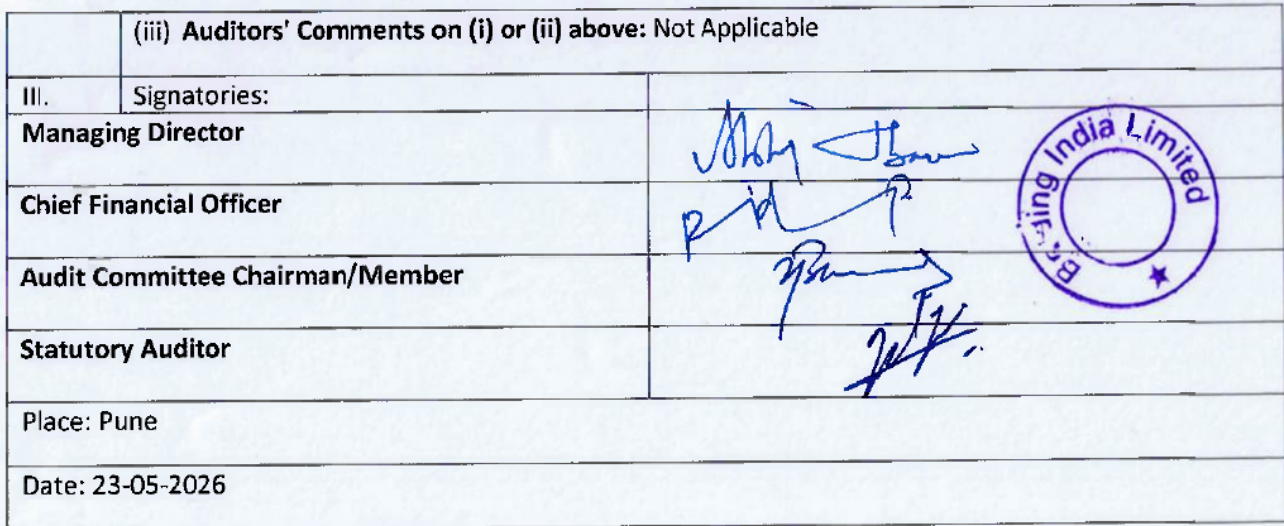 (iii) Auditors' Comments on (i) or (ii) above: Not Applicable
III. Signatories:
Managing Director
Chief Financial Officer
Audit Committee Chairman/Member
Statutory Auditor
India Limited
Place: Pune
Date: 23-05-2026